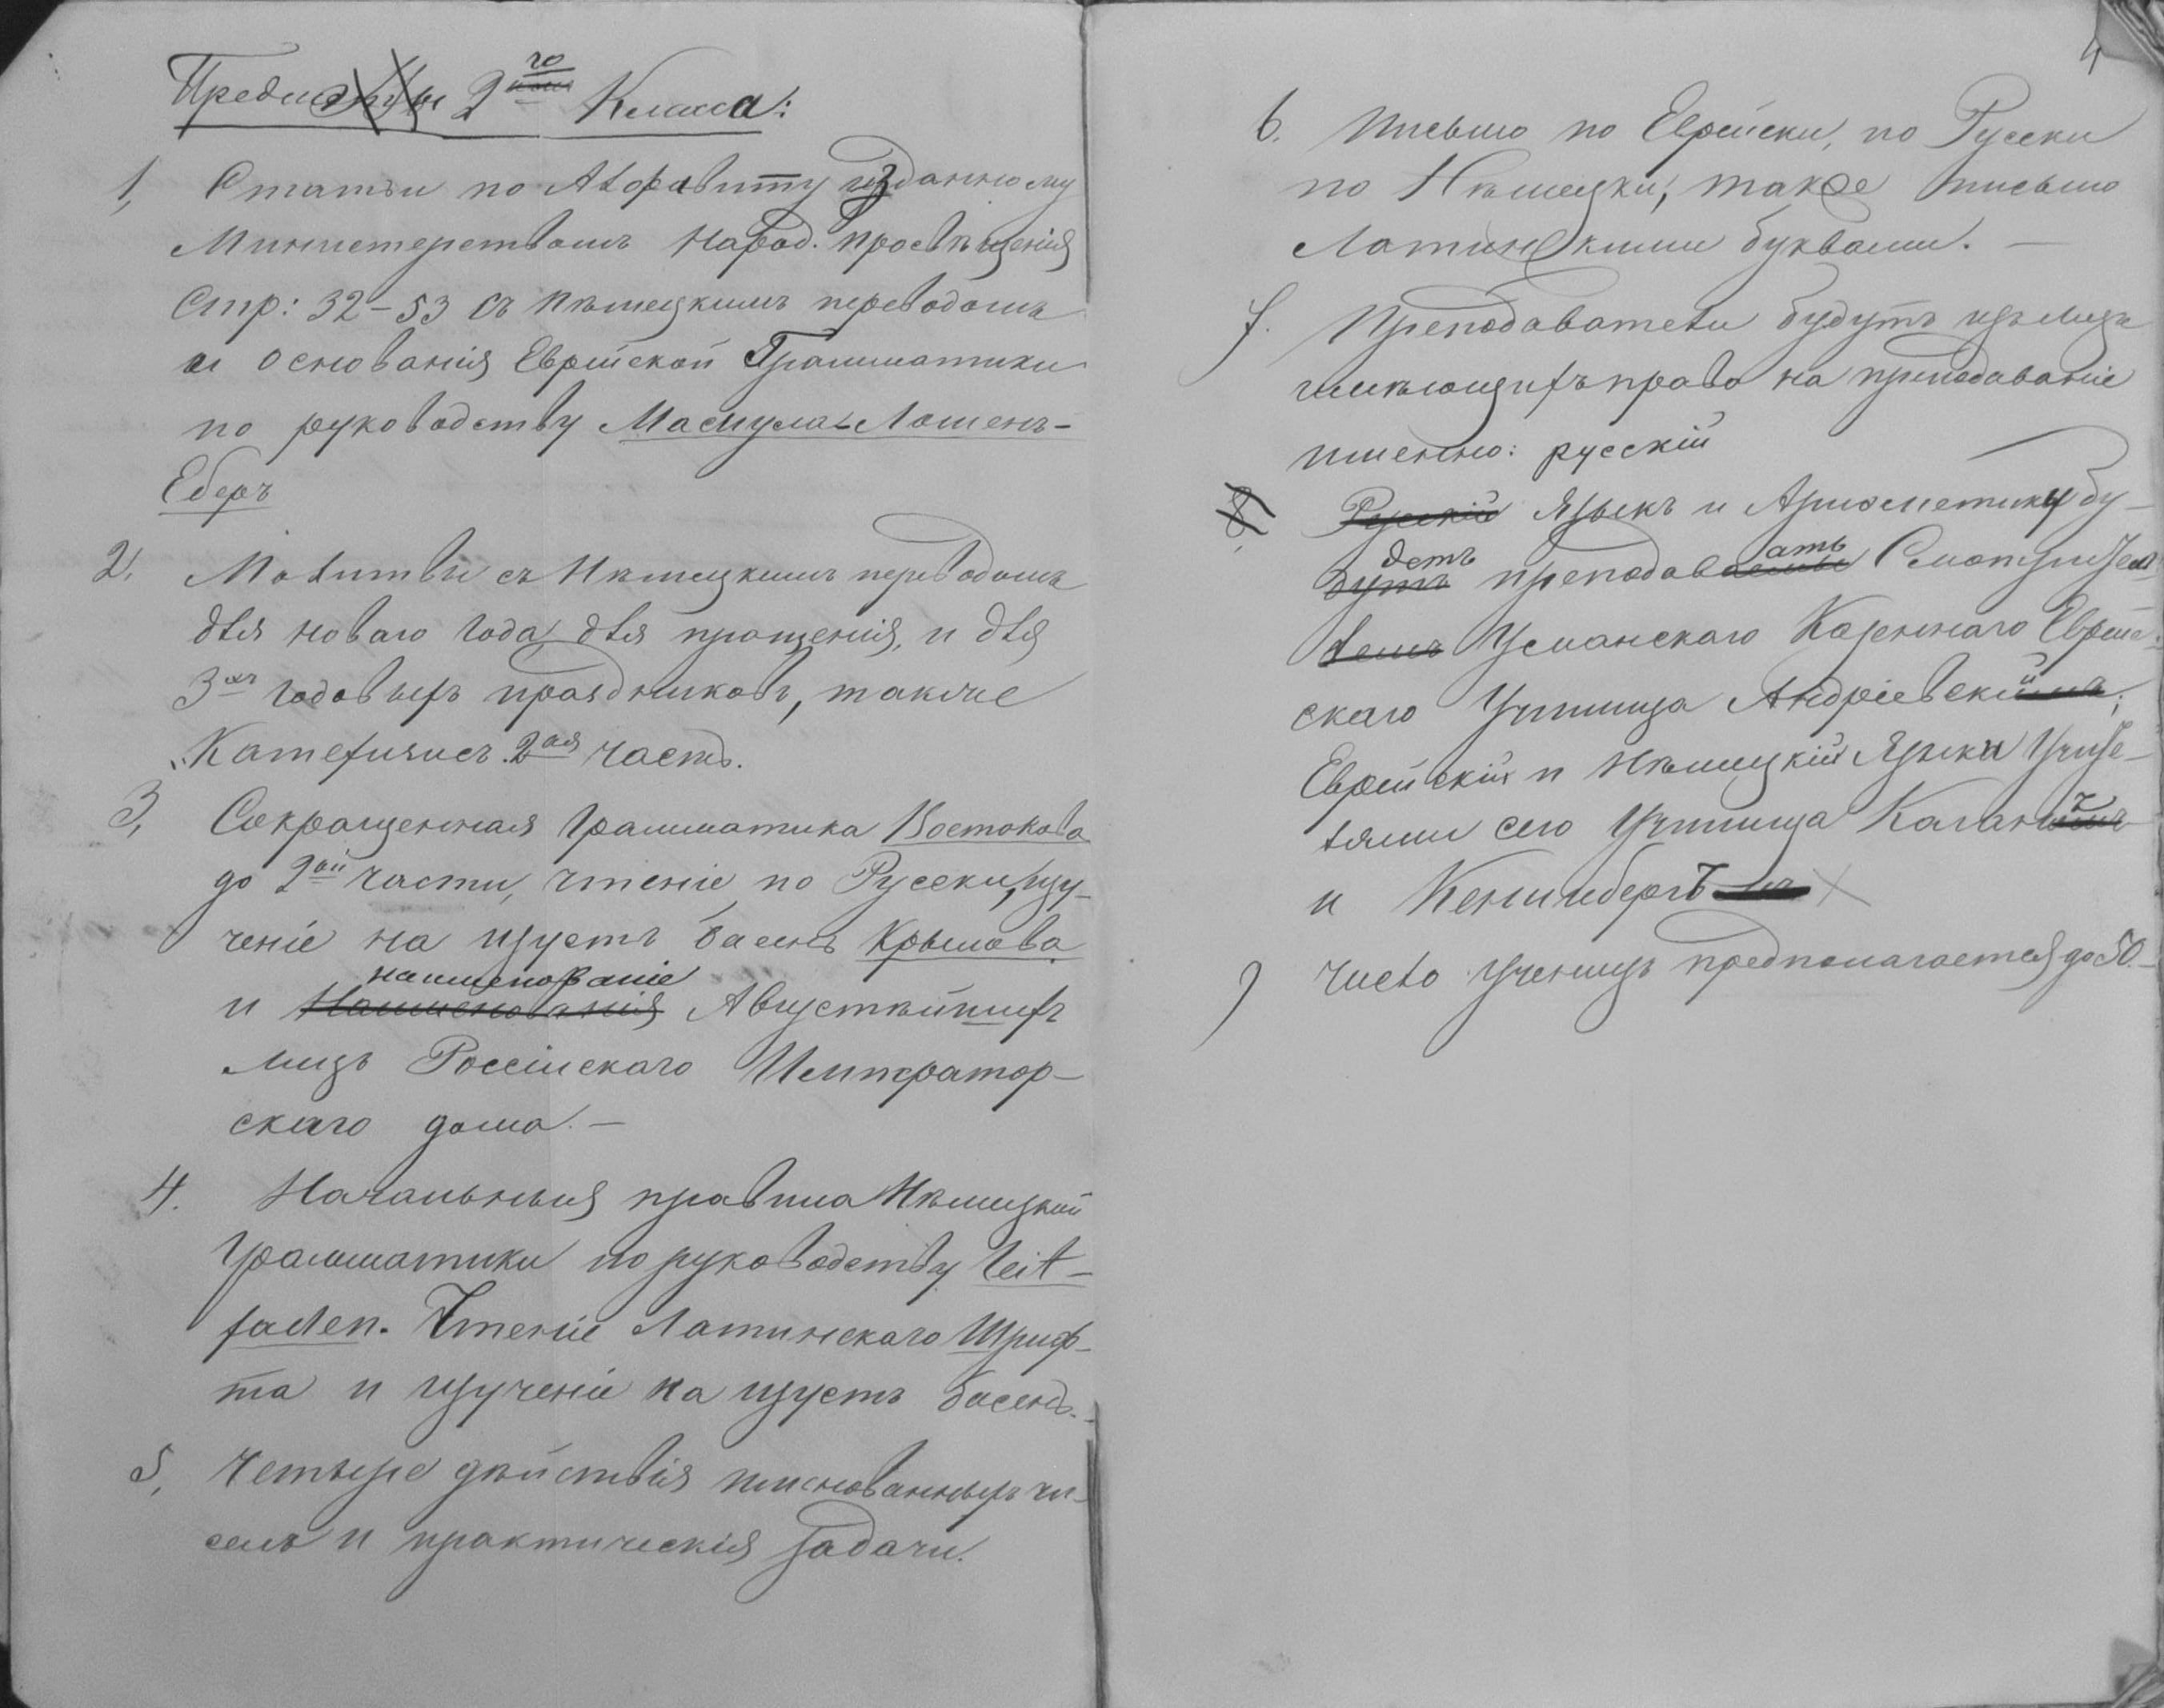 Предметы 2го Класса:
1, Статьи по Алфавиту изданному
Министерствомъ Народ. просвѣщенія
Стр: 32-53 съ Нѣмецкимъ переводомъ
и основанія Еврейской Грамматики
по руководству Маслула-Лошенъ-
Еберъ
2. Молитвы съ Нѣмецкимъ переводомъ
для новаго года, для прощенія, и для
3хъ годовыхъ праздниковъ, также
Катехизисъ 2ая часть.
3, Сокращенная Грамматика Востокова
до 2ой части, чтеніе по Русски, изу-
ченіе на изустъ басень Крылова
наименованіе
и Наименованія Августѣйшихъ
лицъ Россійскаго Император-
скаго дома. —
4. Начальныя правила Нѣмецкой
Грамматики по руководству Leit-
faden. Чтеніе Латинскаго Шриф-
та и изученіе на изустъ басень. -
5, Четыре дѣйствія именованныхъ чи-
селъ и практическія задачи.
4
6. Письмо по Еврейски, по Русски
по Нѣмецки, также письмо
Латинскими буквами. —
7. Преподаватели будутъ изъ лицъ
имѣющихъ право на преподаваніе
именно: русскій
8. Русскій Языкъ и Ариѳметику бу-
детъ ать
дутъ преподаваемы Смотрител
лемъ Уманскаго Казеннаго Еврей-
скаго Училища Андріевскій;
Еврейскій и Нѣмецкій Языки Учите-
лями сего Училища
и
Число Ученицъ предполагается до 50. -